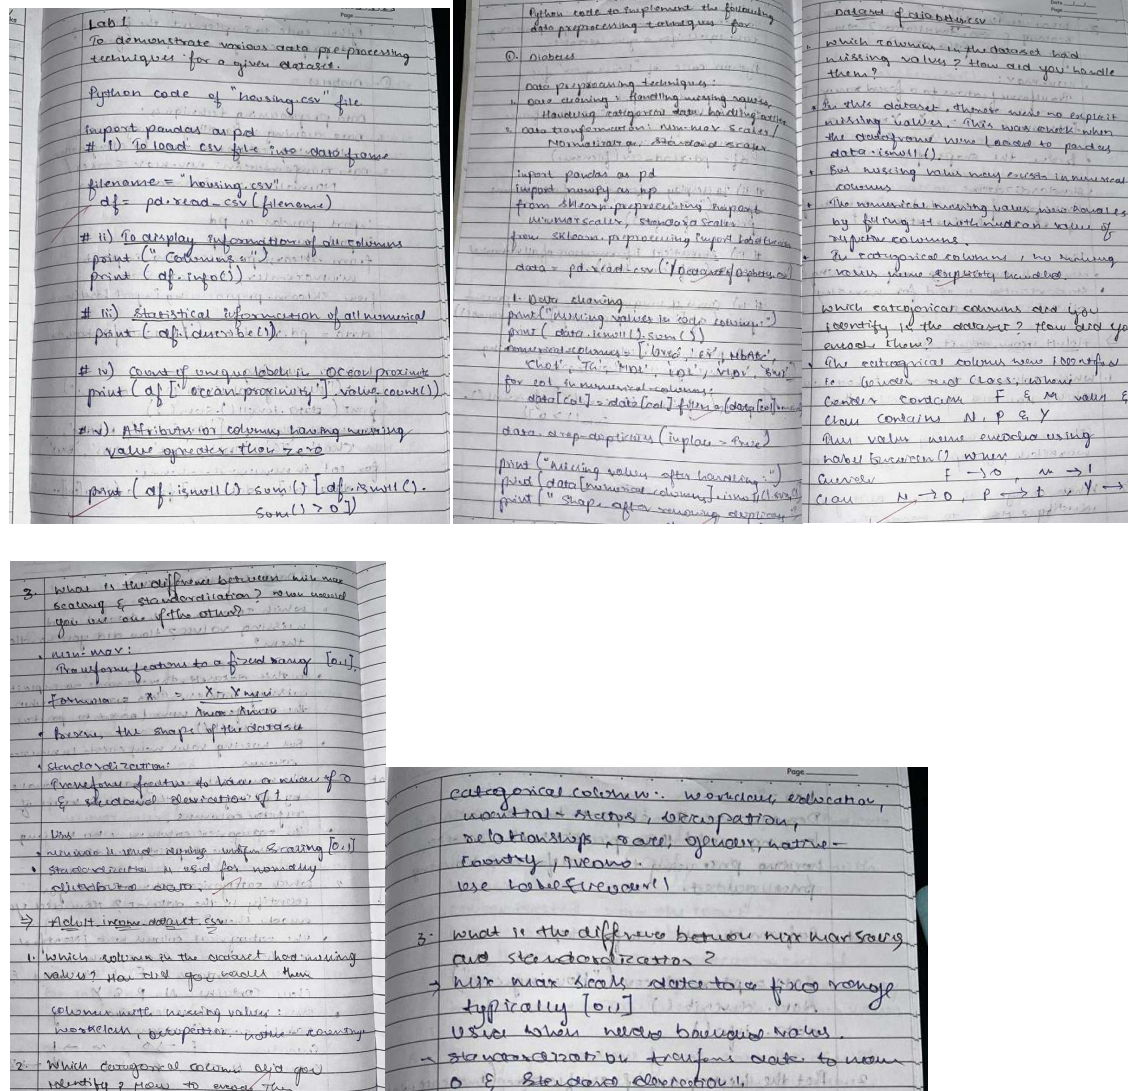 Lab 1
To demonstrate various data pre-processing
techniques for a given dataset.
Python code of "housing.csv" file
import pandas as pd
# i) To load csv file into data frame
filename = "housing.csv"
df = pd.read_csv(filename)
# ii) To display information of all columns
print("Columns:")
print(df.info())
# iii) Statistical information of all numerical
print(df.describe())
# iv) Count of unique labels in Ocean proximity
print(df['ocean proximity'].value_count())
# v) Attributes or columns having missing
value greater than zero
print(df.isnull().sum()[df.isnull().
sum() > 0])
Page
Python code to implement the following
data preprocessing techniques for
①. Diabetes
Data preprocessing techniques:
Data cleaning: Handling missing values,
Handling categorical data, handling
Data transformation: min-max Scaler/
Normalization, Standard scaler
import pandas as pd
import numpy as np
from sklearn.preprocessing import
minmaxscaler, standard scaler
from sklearn.preprocessing import
data = pd.read_csv(
1. Data cleaning
print("missing values in
print(data.isnull().sum())
numerical-columns = ['Urea', 'Cr', 'HbA1c',
'Chol', 'TG', 'HDL', 'LDL', 'VLDL', 'BMI'
for col in numerical-columns:
data[col] = data[col].
data.drop-duplicates(inplace = True)
print("Missing values after handling:")
print(data[numerical-columns].isnull().
print("shape after removing
Page
Dataset of diabetes.csv
which columns in the dataset had
missing values? How did you handle
them?
In this dataset, there were no explicit
missing values. This was when
the dataframe were loaded to pandas
data.isnull().
But missing value may exists in numerical
columns
The numerical missing values were
by filling it with median value of
columns.
In categorical columns, no missing
values were explicitly handled.
Which categorical columns did you
identify in the dataset? How did you
encode them?
The categorical columns were
Gender and Class, where
Gender contains F & M values &
class contains N, P & Y
This value were encoded using
LabelEncoder() when
Gender F → 0, M → 1
Class N → 0, P → 1, Y →
3. What is the difference between min max
scaling & standardization? when would
you use one of the other?
min-max:
Transform features to a fixed range [0,1].
Formula = x' = x - xmin
xmax - xmin
the shape of the dataset
standardization:
Transform feature to have a mean of 0
& standard deviation of 1
Uses
minmax is used scaling [0,1]
standardization is used for normally
distributed data.
⇒ Adult income dataset.csv
1. Which column in the dataset had missing
values? How did you handle them
columns with missing values:
workclass, occupation, native country
2. Which categorical column did you
identify? How to encode them
Page
categorical column: workclass, education,
marital-status, occupation,
relationships, race, gender, native-
country, income.
use LabelEncoder()
3. What is the difference between min max scaling
and standardization?
→ Min max scale data to a fixed range
typically [0,1]
Used when needs bounded values.
→ standardization data to mean
0 & standard deviation 1.